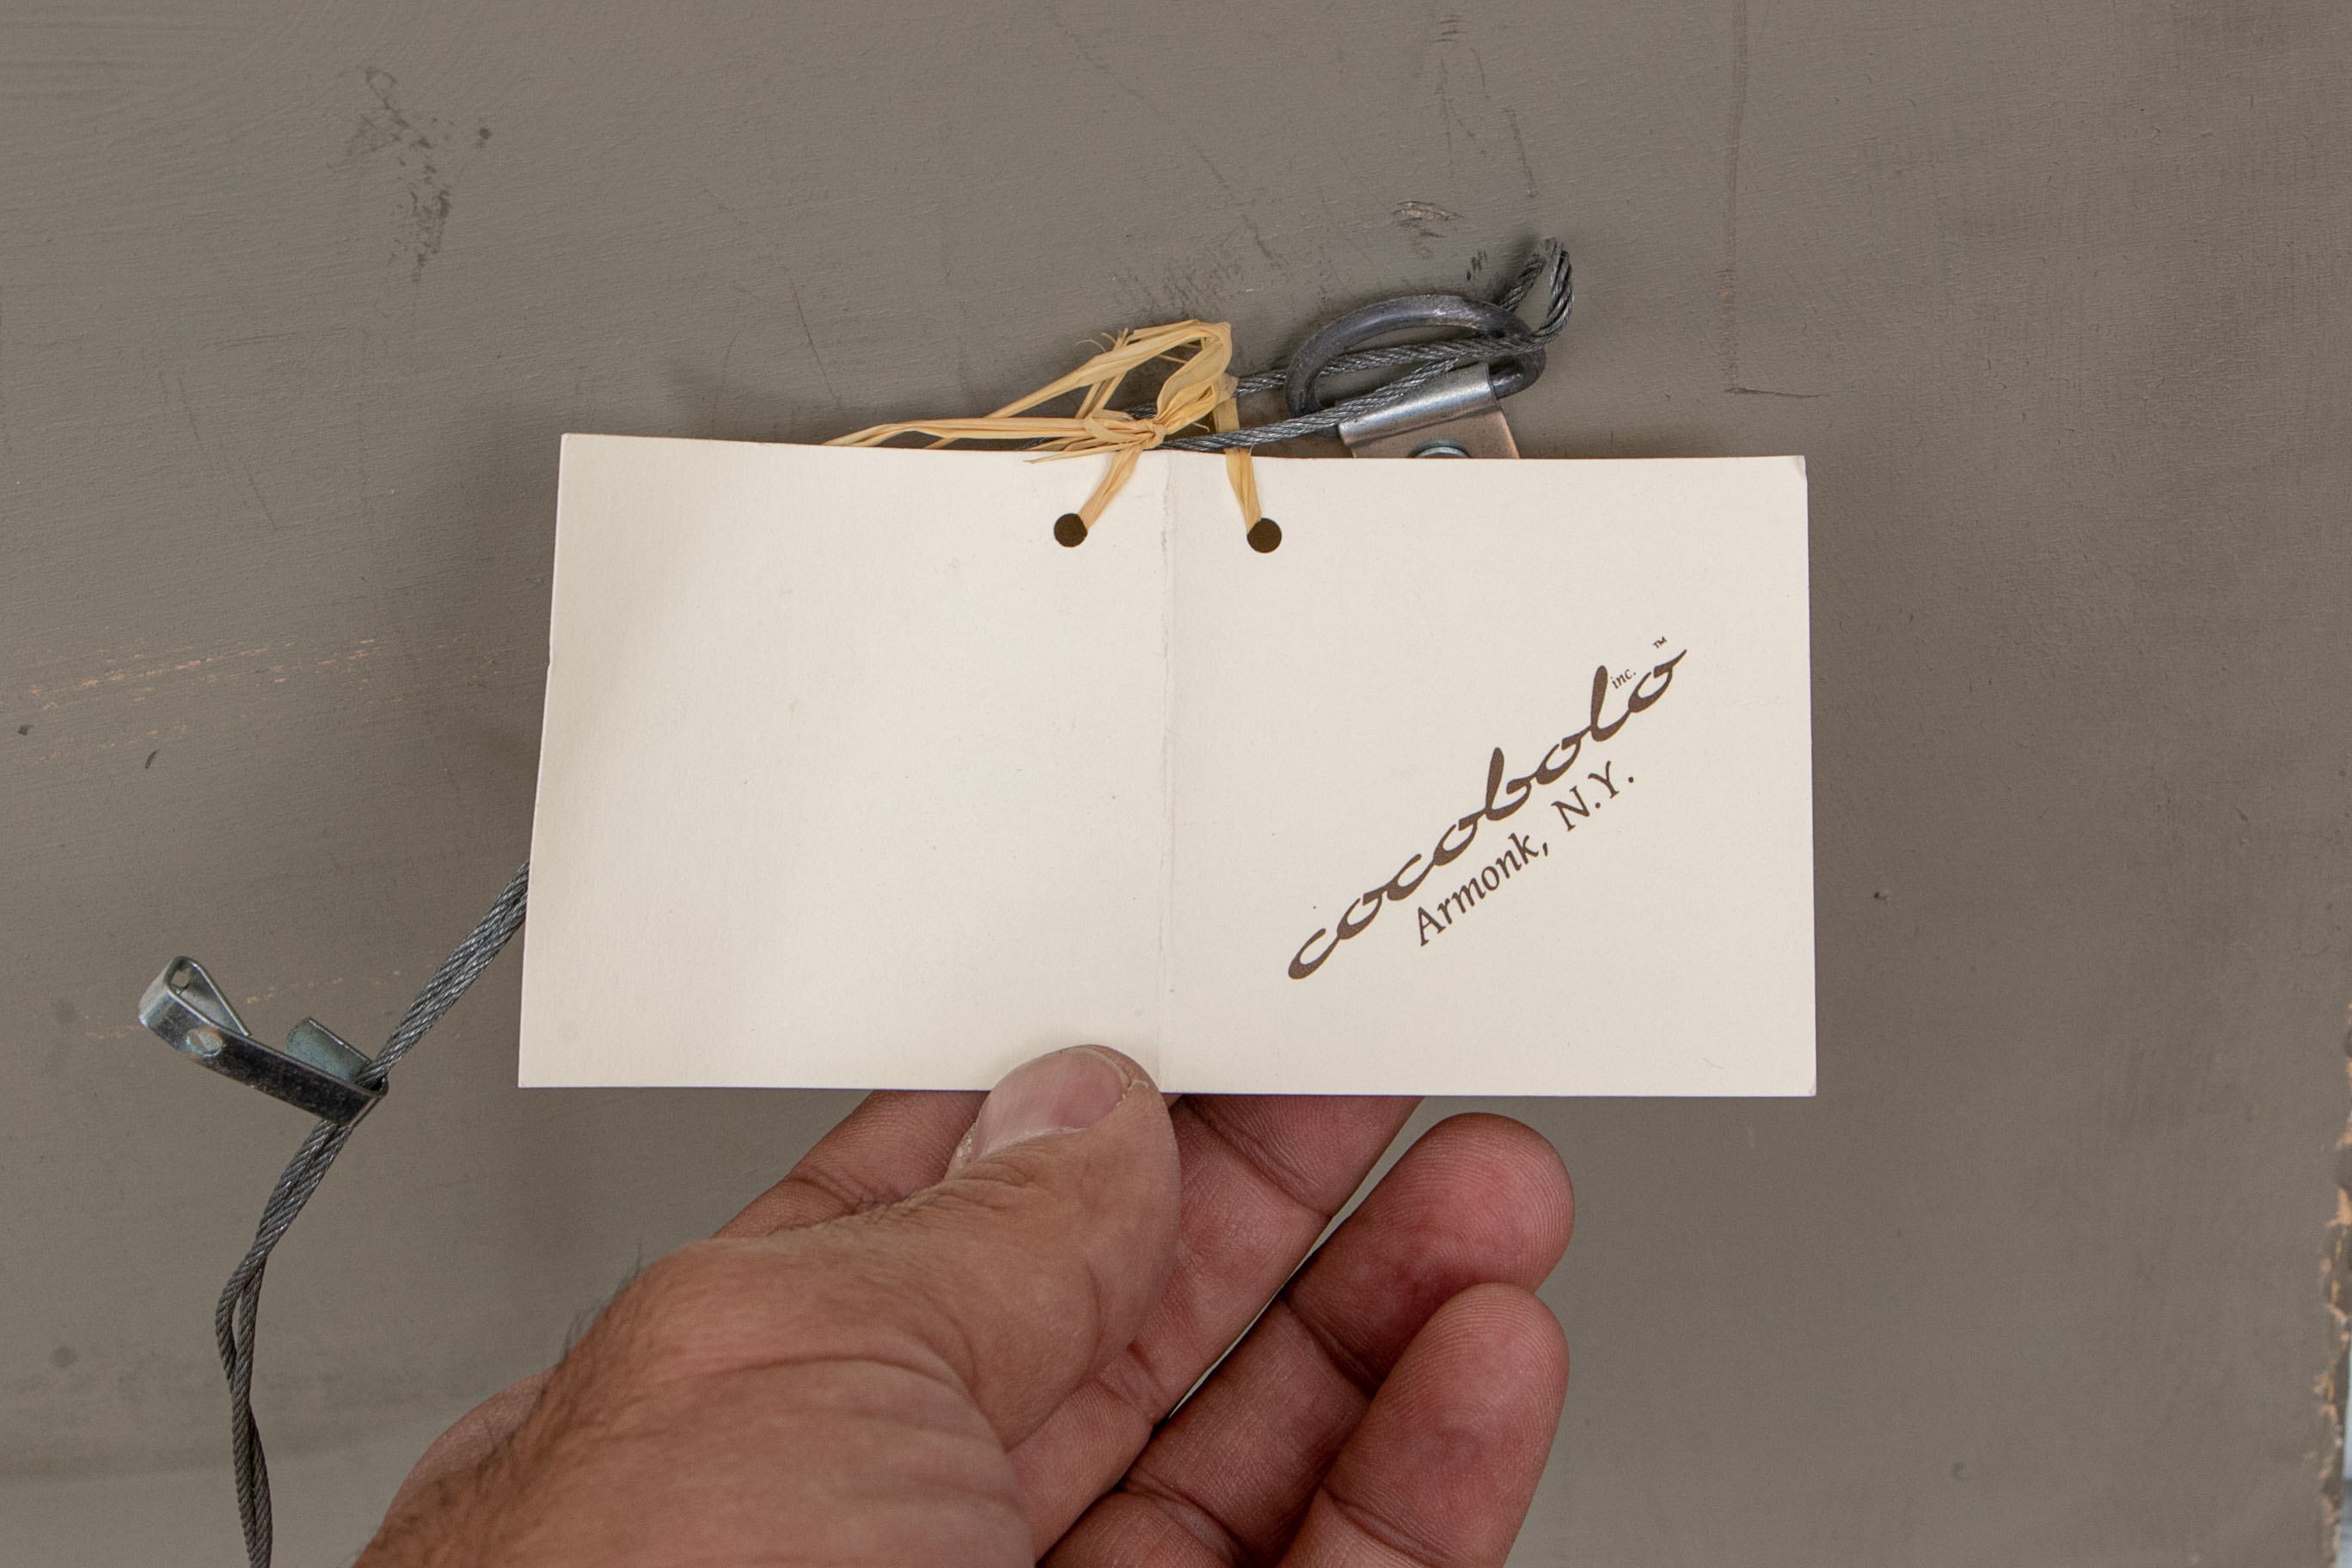 cocobolo inc. ™
Armonk, N.Y.